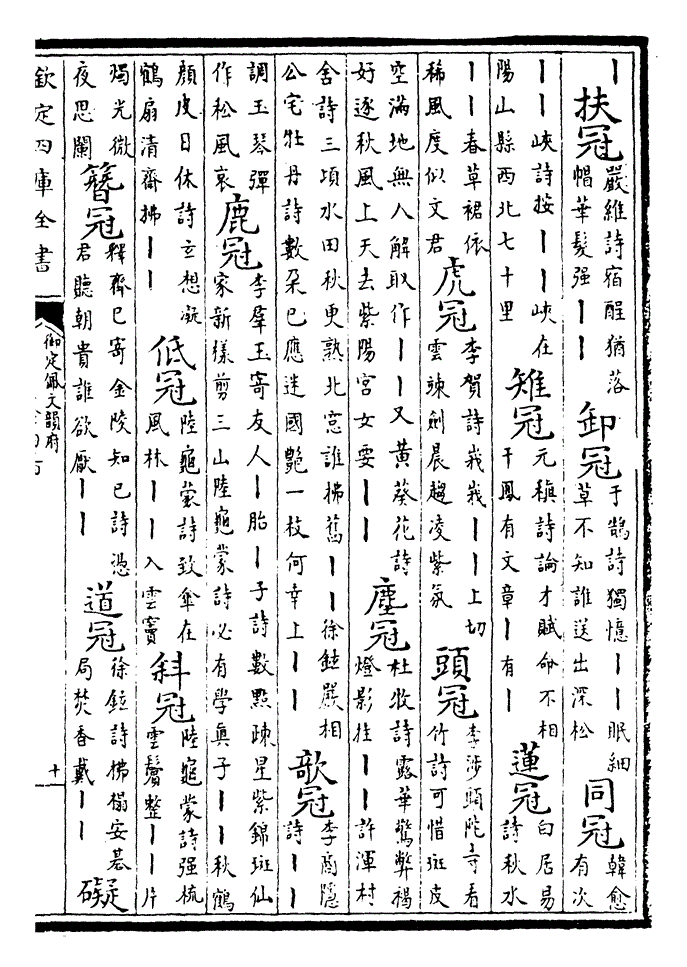 丨扶冠嚴維詩宿酲猶落帽華髮强丨丨卸冠于鵠詩獨憶丨丨眠細草不知誰送出深松同冠韓愈有次
丨丨峽詩按丨丨峽在陽山縣西北七十里雉冠元稹詩論才賦命不相干鳳有文章丨有丨蓮冠白居易詩秋水
丨丨春草裙依稀風度似文君虎冠李賀詩峩峩丨丨上切雲竦劍晨趨凌紫氛頭冠李涉頭陀寺看竹詩可惜斑皮
空滿地無人解取作丨丨又黃葵花詩好逐秋風上天去紫陽宮女要丨丨塵冠杜牧詩露華驚弊褐燈影挂丨丨許渾村
舍詩三項水田秋更熟北窓誰拂舊丨丨徐鉉嚴相公宅牡丹詩數朵已應迷國艷一枝何幸上丨丨歌冠李商隱詩丨丨
調玉琴彈作松風哀鹿冠李羣玉寄友人丨胎丨子詩數點疎星紫錦斑仙家新樣剪三山陸龜蒙詩必有學真子丨丨秋鶴
顏皮日休詩玄想凝鶴扇清齋拂丨丨低冠陸龜蒙詩致傘在風林丨丨入雲竇斜冠陸龜蒙詩强梳雲鬢整丨丨片
燭光微夜思闌簪冠釋齊已寄金陵知已詩憑君聽朝貴誰欲厭丨丨道冠徐鉉詩拂榻安棊局焚香戴丨丨礙
欽定四庫全書
御定佩文韻府
十一